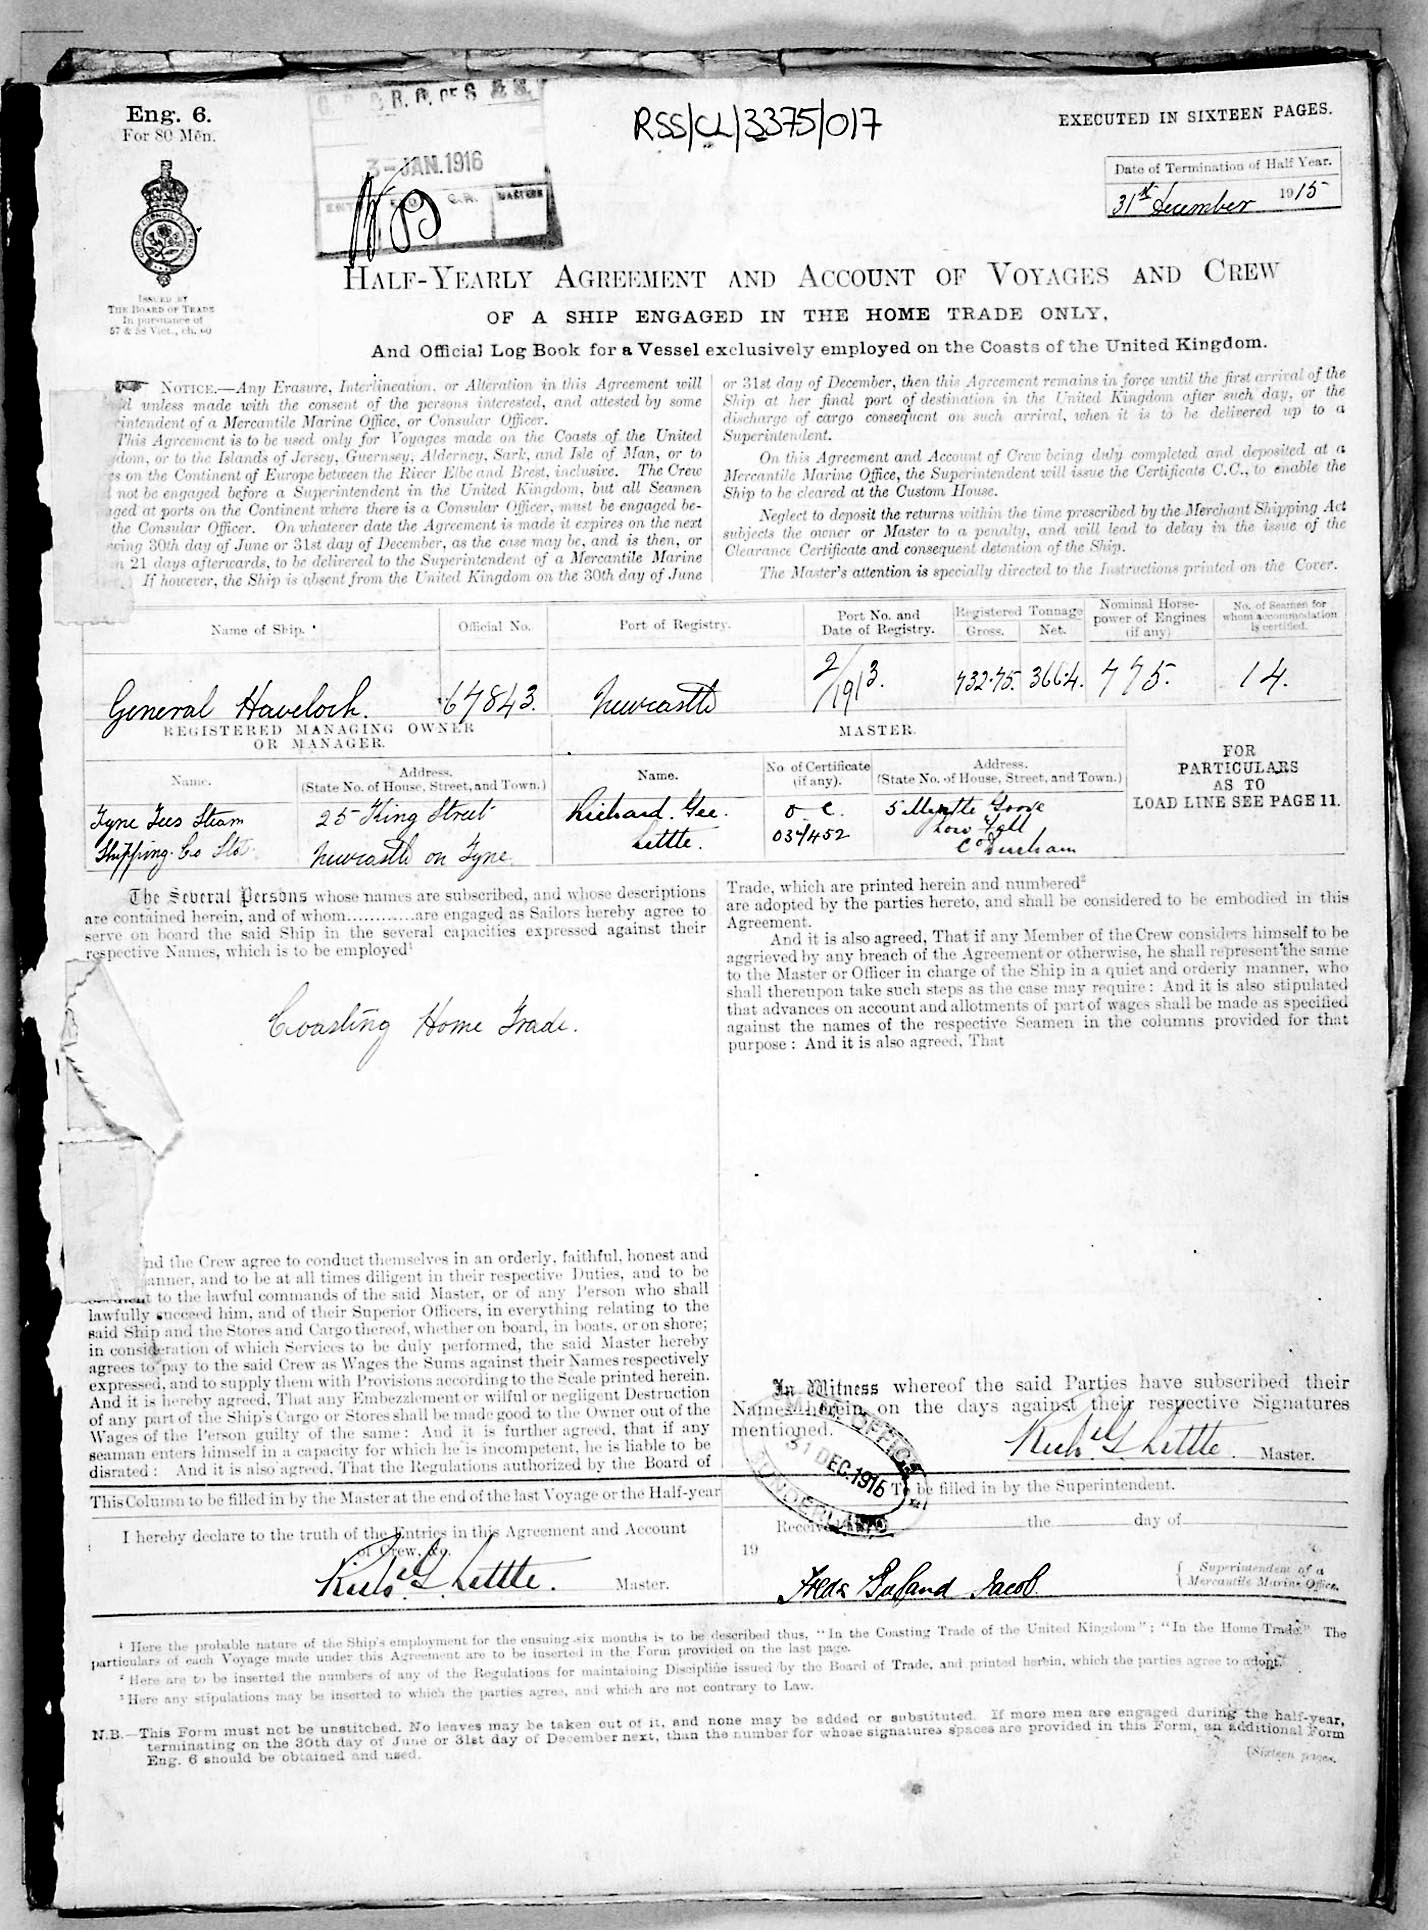 Eng. 6.
For 80 Men.
ISSUED BY
THE BOARD OF TRADE
In pursuance of
57 & 58 Vict., ch. 60
3-JAN.1916
C.R.
MASTERS
RSS/CL/3375/017
EXECUTED IN SIXTEEN PAGES.
Date of Termination of Half Year.
31st December 1915
HALF-YEARLY AGREEMENT AND ACCOUNT OF VOYAGES AND CREW
OF A SHIP ENGAGED IN THE HOME TRADE ONLY,
And Official Log Book for a Vessel exclusively employed on the Coasts of the United Kingdom.
NOTICE.—Any Erasure, Interlineation, or Alteration in this Agreement will
unless made with the consent of the persons interested, and attested by some
rintendent of a Mercantile Marine Office, or Consular Officer.
This Agreement is to be used only for Voyages made on the Coasts of the United
dom, or to the Islands of Jersey, Guernsey, Alderney, Sark, and Isle of Man, or to
s on the Continent of Europe between the River Elbe and Brest, inclusive. The Crew
not be engaged before a Superintendent in the United Kingdom, but all Seamen
aged at ports on the Continent where there is a Consular Officer, must be engaged be-
the Consular Officer. On whatever date the Agreement is made it expires on the next
wing 30th day of June or 31st day of December, as the case may be, and is then, or
n 21 days afterwards, to be delivered to the Superintendent of a Mercantile Marine
If however, the Ship is absent from the United Kingdom on the 30th day of June
or 31st day of December, then this Agreement remains in force until the first arrival of the
Ship at her final port of destination in the United Kingdom after such day, or the
discharge of cargo consequent on such arrival, when it is to be delivered up to a
Superintendent.
On this Agreement and Account of Crew being duly completed and deposited at a
Mercantile Marine Office, the Superintendent will issue the Certificate C.C., to enable the
Ship to be cleared at the Custom House.
Neglect to deposit the returns within the time prescribed by the Merchant Shipping Act
subjects the owner or Master to a penalty, and will lead to delay in the issue of the
Clearance Certificate and consequent detention of the Ship.
The Master's attention is specially directed to the Instructions printed on the Cover.
Name of Ship.
Official No.
Port of Registry.
Port No. and
Date of Registry.
Registered Tonnage
Gross. Net.
Nominal Horse-
power of Engines
(if any)
No. of Seamen for
whom accommodation
is certified.
General Havelock. 67843. Newcastle 2/1913. 732.75. 366.4. 775. 14.
REGISTERED MANAGING OWNER
OR MANAGER.
MASTER.
Name.
Address.
(State No. of House, Street, and Town.)
Name.
No. of Certificate
(if any).
Address.
(State No. of House, Street, and Town.)
FOR
PARTICULARS
AS TO
LOAD LINE SEE PAGE 11.
Tyne Tees Steam 25 King Street Richard. Gee. O.C. 5 Myrtle Grove
Shipping Co Ltd Newcastle on Tyne. Little. 034452 Low Fell
Co Durham
The Several Persons whose names are subscribed, and whose descriptions
are contained herein, and of whom............are engaged as Sailors hereby agree to
serve on board the said Ship in the several capacities expressed against their
respective Names, which is to be employed¹
Coasting Home Trade.
nd the Crew agree to conduct themselves in an orderly, faithful, honest and
anner, and to be at all times diligent in their respective Duties, and to be
to the lawful commands of the said Master, or of any Person who shall
lawfully succeed him, and of their Superior Officers, in everything relating to the
said Ship and the Stores and Cargo thereof, whether on board, in boats, or on shore;
in consideration of which Services to be duly performed, the said Master hereby
agrees to pay to the said Crew as Wages the Sums against their Names respectively
expressed, and to supply them with Provisions according to the Scale printed herein.
And it is hereby agreed, That any Embezzlement or wilful or negligent Destruction
of any part of the Ship's Cargo or Stores shall be made good to the Owner out of the
Wages of the Person guilty of the same: And it is further agreed, that if any
seaman enters himself in a capacity for which he is incompetent, he is liable to be
disrated: And it is also agreed, That the Regulations authorized by the Board of
Trade, which are printed herein and numbered²
are adopted by the parties hereto, and shall be considered to be embodied in this
Agreement.
And it is also agreed, That if any Member of the Crew considers himself to be
aggrieved by any breach of the Agreement or otherwise, he shall represent the same
to the Master or Officer in charge of the Ship in a quiet and orderly manner, who
shall thereupon take such steps as the case may require: And it is also stipulated
that advances on account and allotments of part of wages shall be made as specified
against the names of the respective Seamen in the columns provided for that
purpose: And it is also agreed, That
In Witness whereof the said Parties have subscribed their
Names herein, on the days against their respective Signatures
mentioned.
Richd G Little. Master.
31 DEC.1915
SUNDERLAND
This Column to be filled in by the Master at the end of the last Voyage or the Half-year
To be filled in by the Superintendent.
I hereby declare to the truth of the Entries in this Agreement and Account
of Crew, &c.
Richd G Little. Master.
Received the day of
19
Jacob.
Superintendent of a
Mercantile Marine Office.
¹ Here the probable nature of the Ship's employment for the ensuing six months is to be described thus, "In the Coasting Trade of the United Kingdom"; "In the Home Trade." The
particulars of each Voyage made under this Agreement are to be inserted in the Form provided on the last page.
² Here are to be inserted the numbers of any of the Regulations for maintaining Discipline issued by the Board of Trade, and printed herein, which the parties agree to adopt.
³ Here any stipulations may be inserted to which the parties agree, and which are not contrary to Law.
N.B.—This Form must not be unstitched. No leaves may be taken out of it, and none may be added or substituted. If more men are engaged during the half-year,
terminating on the 30th day of June or 31st day of December next, than the number for whose signatures spaces are provided in this Form, an additional Form
Eng. 6 should be obtained and used.
[Sixteen pages.